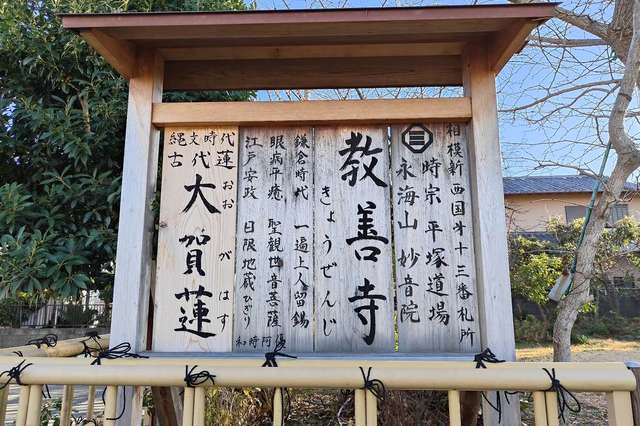 相模新西国第十三番札所
時宗 平塚道場
永海山 妙音院
教善寺
きょうぜんじ
鎌倉時代 一遍上人留錫
眼病平癒 聖観世音菩薩
江戸安政 日限地蔵ひぎり
縄文時代
古代蓮
大賀蓮
おおがはす